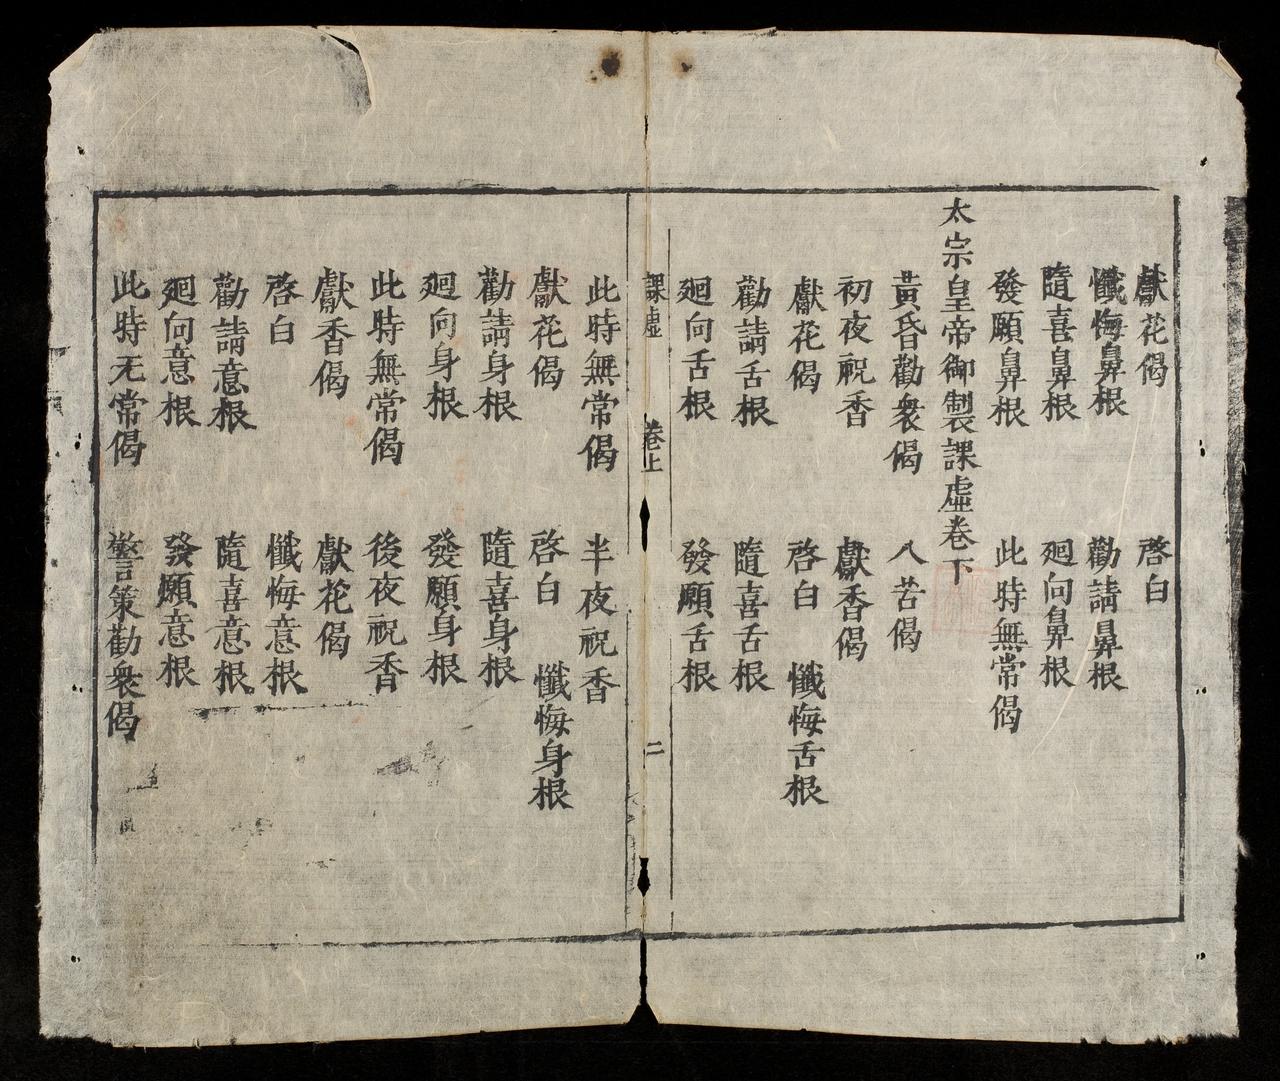 獻花偈 啓白
懺悔鼻根 勸請鼻根
隨喜鼻根 廻向鼻根
發願鼻根 此時無常偈
太宗皇帝御製課虛卷下
黃昏勸衆偈 八苦偈
初夜祝香 獻香偈
獻花偈 啓白 懺悔舌根
勸請舌根 隨喜舌根
廻向舌根 發願舌根
課虛 卷上 二
此時無常偈 半夜祝香
獻花偈 啓白 懺悔身根
勸請身根 隨喜身根
廻向身根 發願身根
此時無常偈 後夜祝香
獻香偈 獻花偈
啓白 懺悔意根
勸請意根 隨喜意根
廻向意根 發願意根
此時无常偈 警策勸衆偈